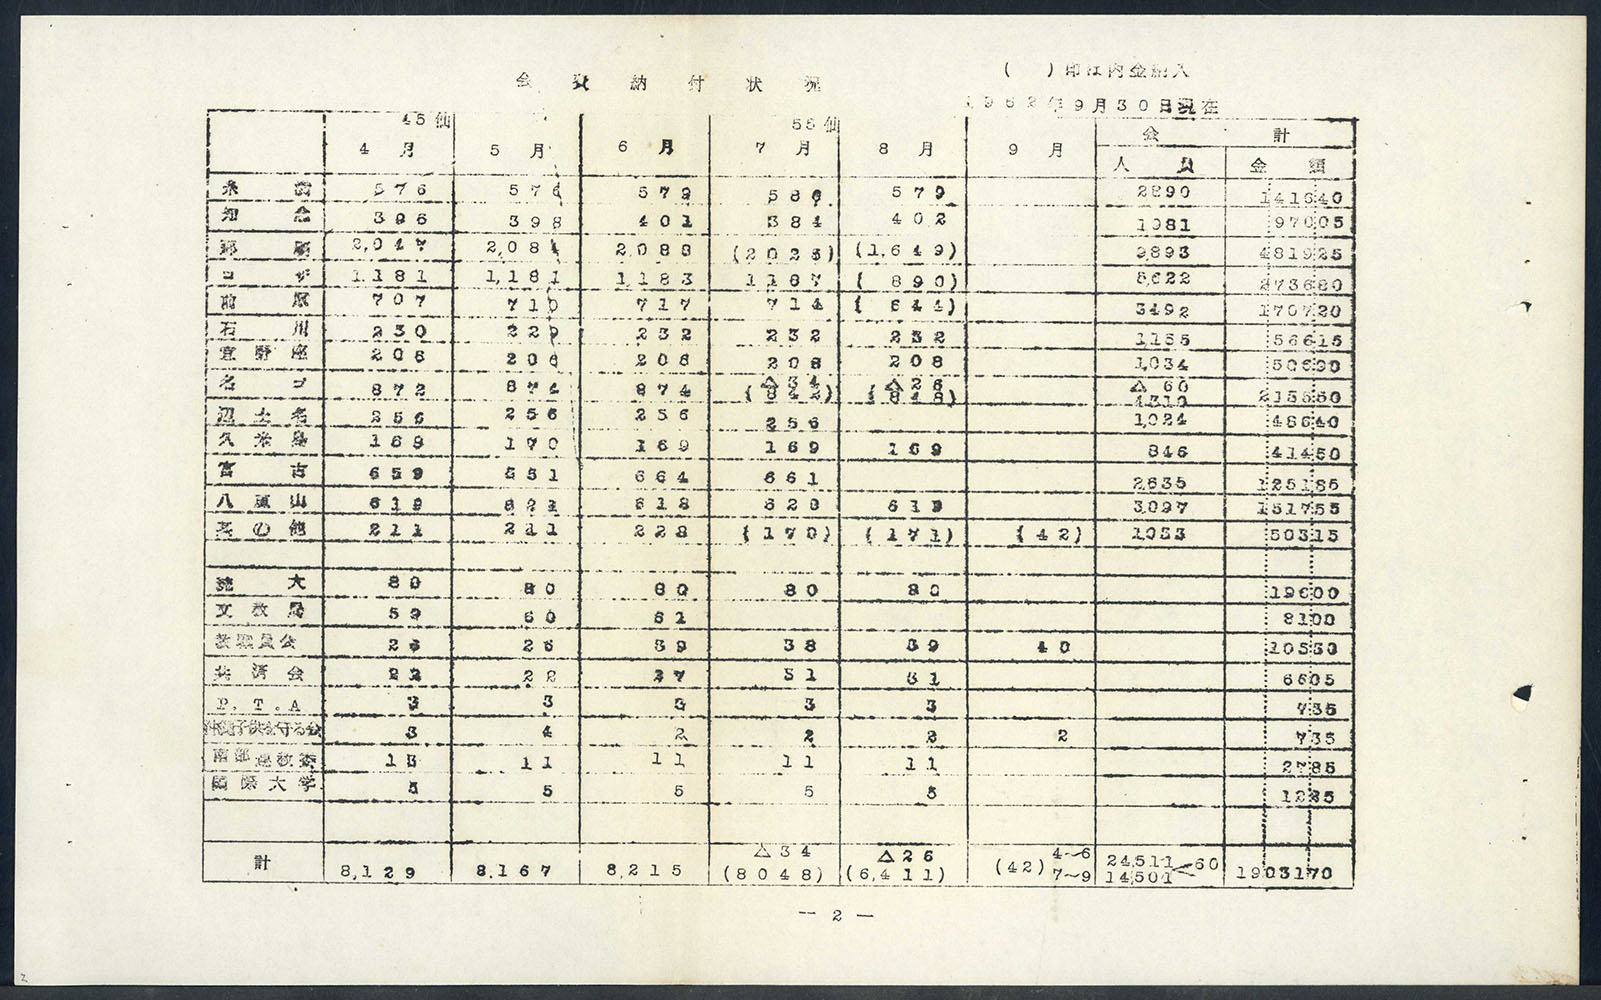 会費納付状況
( )印は内金納入
1962年9月30日現在
45仙 55仙
4月 5月 6月 7月 8月 9月 会計
人員 金額
糸満 576 576 579 580 579 2890 141640
知念 396 398 401 384 402 1981 97005
那覇 2,047 2,084 2,088 (2025) (1,649) 9893 481925
コザ 1,181 1,181 1,183 1187 (890) 5622 273680
前原 707 710 717 714 (644) 3492 170720
石川 230 229 232 232 232 1,155 56615
宜野座 206 206 206 208 208 1,034 50690
名ゴ 872 874 874 △34 (842) △26 (848) △60 4310 215550
辺土名 256 256 256 256 1,024 48640
久米島 169 170 169 169 169 846 41450
宮古 659 651 664 661 2635 125185
八重山 619 621 618 620 619 3,097 151755
其の他 211 211 228 (170) (171) (42) 1033 50315
琉大 80 80 80 80 80 19600
文教局 59 60 61 8100
教職員会 26 26 39 38 39 40 10530
共済会 22 22 27 31 31 6605
P.T.A 3 3 3 3 3 735
沖縄子供を守る会 3 4 2 2 2 2 735
南部連教委 13 11 11 11 11 2785
国際大学 5 5 5 5 5 1225
計 8,129 8,167 8,215 △34 (8048) △26 (6,411) (42) 4~6 7~9 24,511 14,501 60 1903170
― 2 ―
2